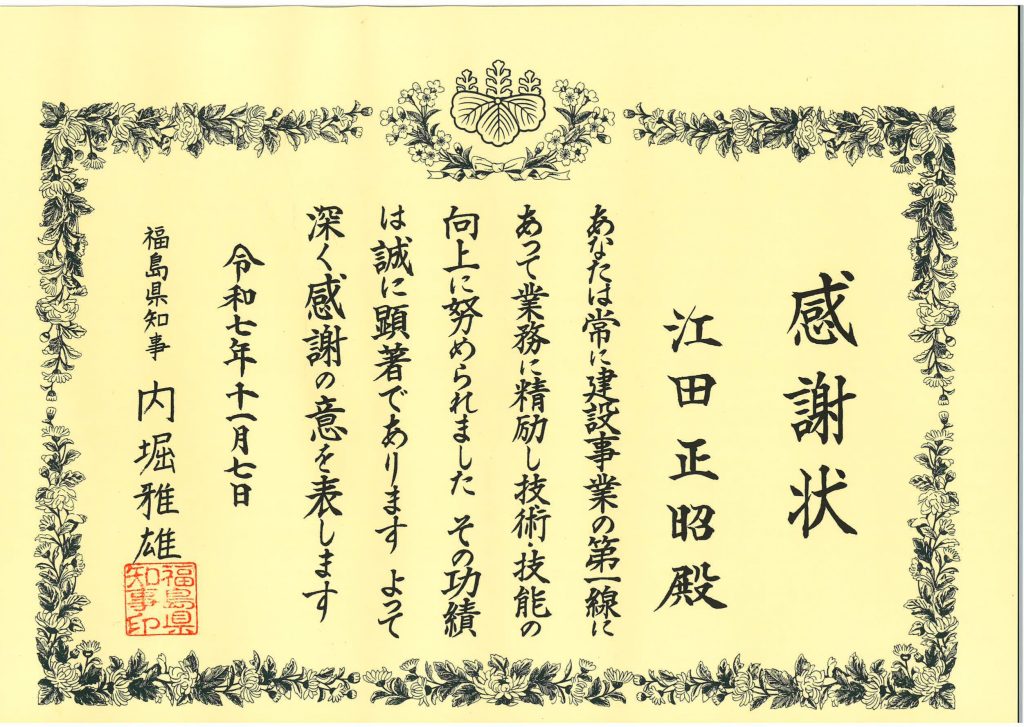 感謝状
江田正昭殿
あなたは常に建設事業の第一線に
あって業務に精励し技術・技能の
向上に努められました その功績
は誠に顕著であります よって
深く感謝の意を表します
令和七年十一月七日
福島県知事 内堀雅雄
福島県
知事印